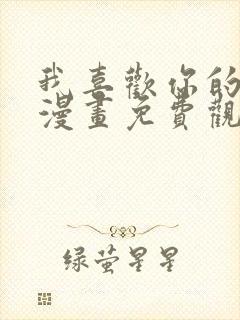 我喜歡你的
漫畫免費觀
绿萤星星